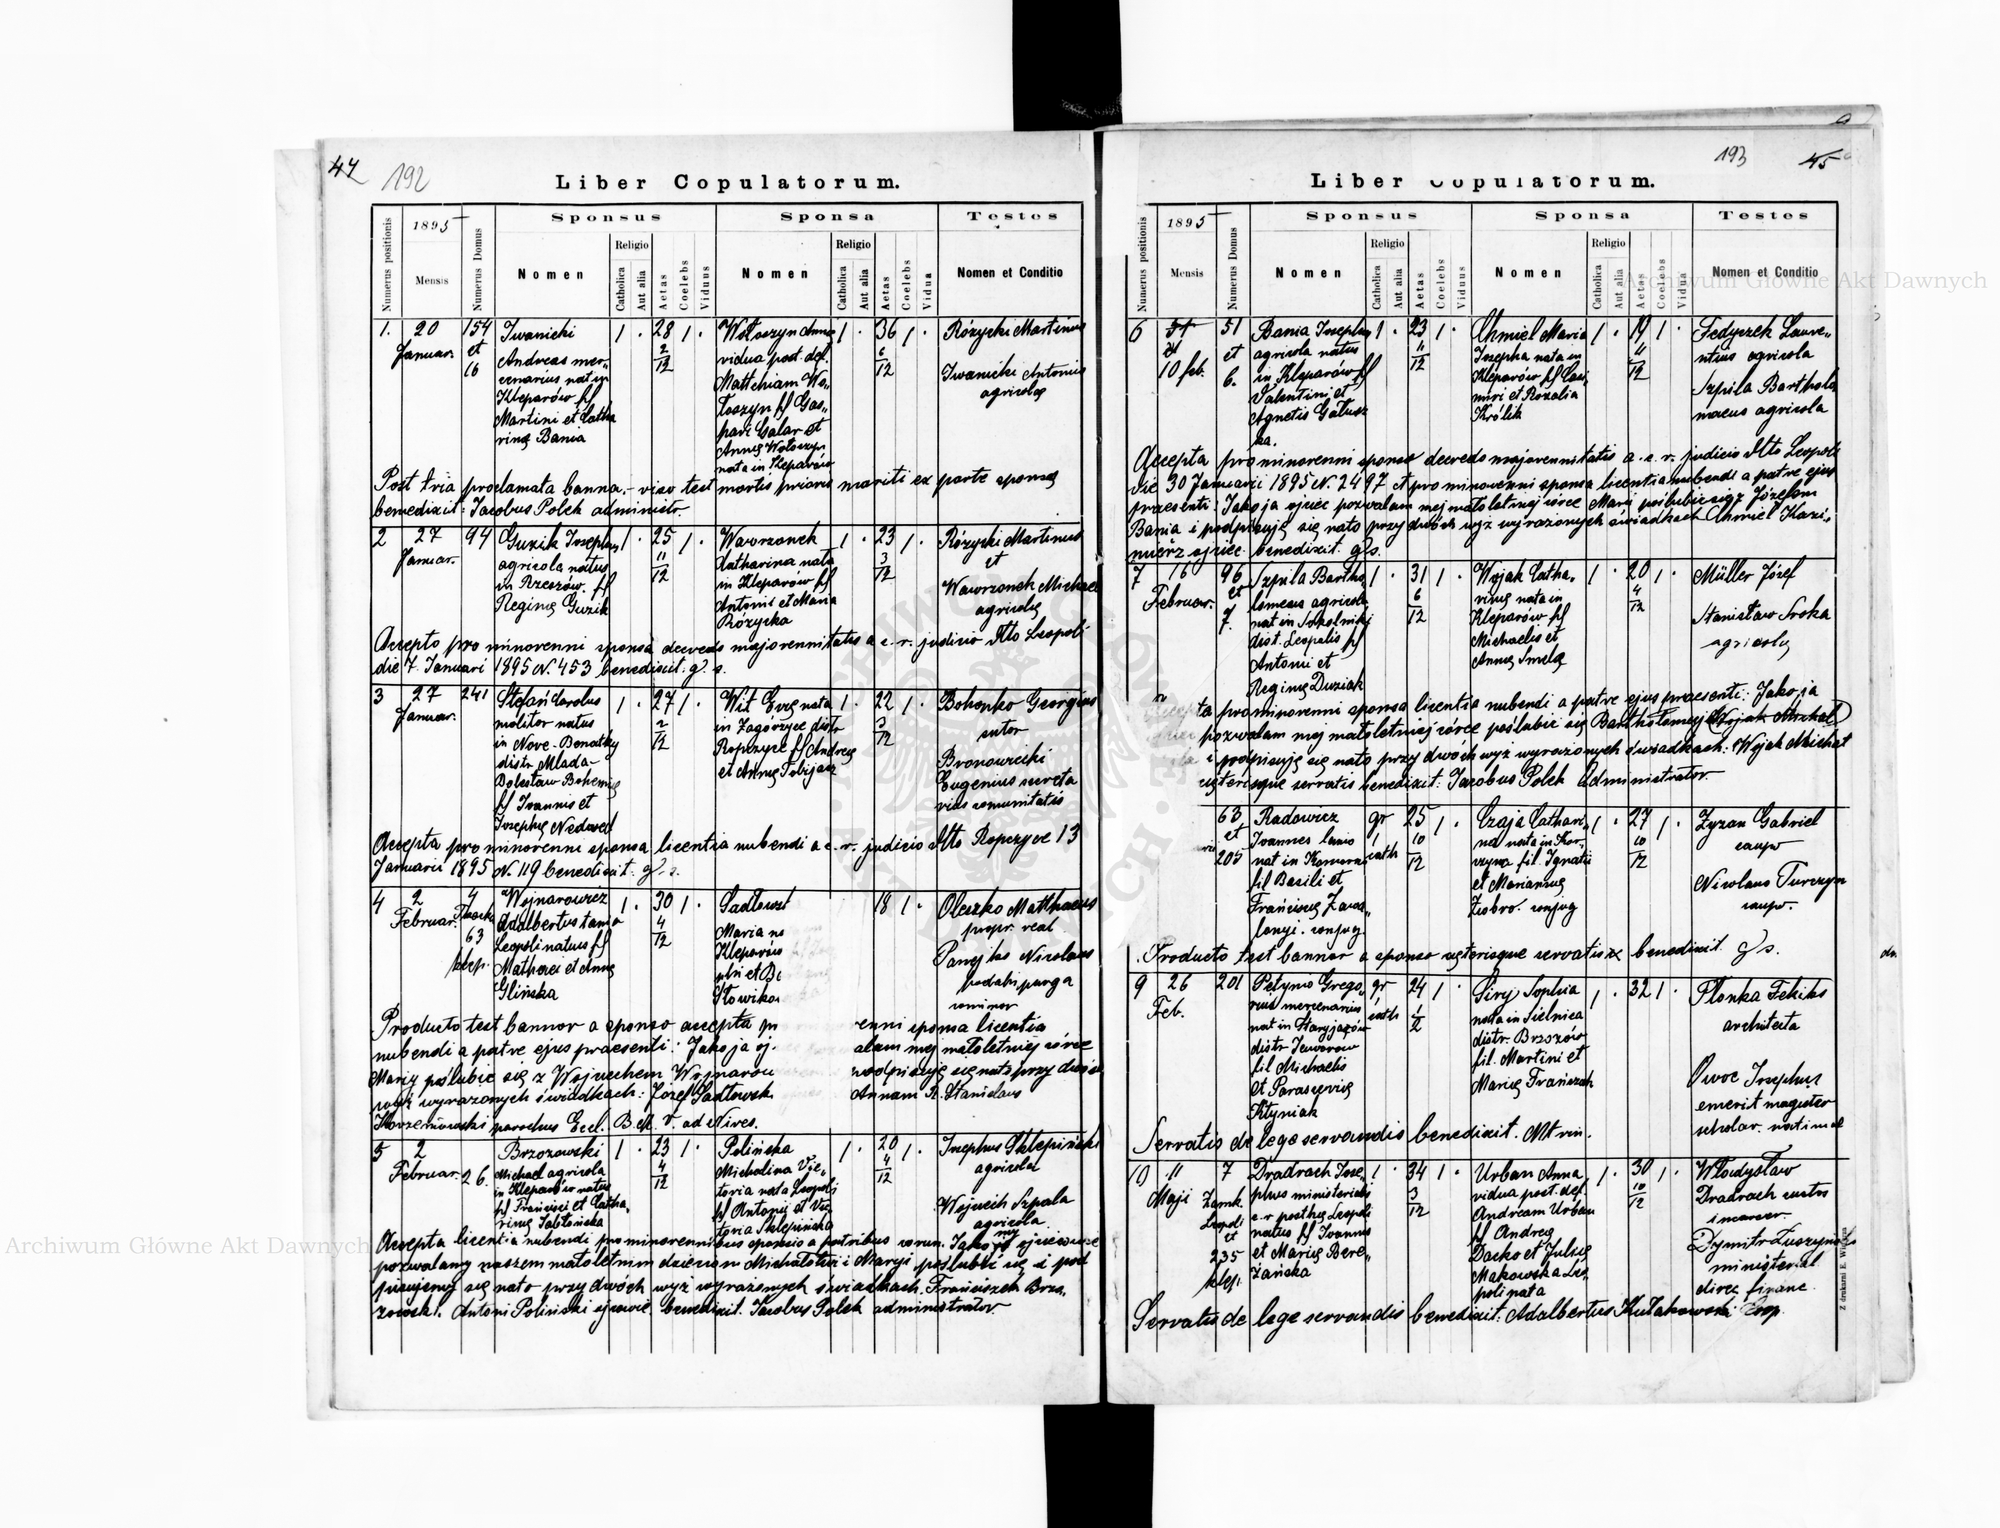 44 192
Liber Copulatorum.
Numerus positionis
1895
Mensis
Numerus Domus
Sponsus
Nomen
Religio
Catholica
Aut alia
Aetas
Coelebs
Viduus
Sponsa
Nomen
Religio
Catholica
Aut alia
Aetas
Coelebs
Vidua
Testes
Nomen et Conditio
1. 20
Januar.
154
et
16
Iwanicki
Andreas mer„
cenarius nat in
Kleparów ff
Martini et Catha
rinę Bania
1 . 28 1 .
2
12
Wołoszyn Anna
vidua post. def.
Matthiam Wo„
łoszyn ff Gas„
pari Galar et
Annę Wołoszyn
nata in Kleparów
1 . 36 1 .
6
12
Różycki Martinus
Iwanicki Antonius
agricolę
Post tria proclamata banna.- viso test mortis prioris mariti ex parte sponsę
benedixit: Jacobus Polek administr.
2 27
Januar.
94
Guzik Josephus
agricola natus
in Rzeszów. ff
Reginę Guzik
1 . 25 1 .
11
12
Wawrzonek
Katharina nata
in Kleparów ff
Antonii et Maria
Różycka
1 . 23 1 .
3
12
Różycki Martinus
et
Wawrzonek Michael
agricolę
Accepto pro minorenni sponsa decreto majorennitatis a c. r. judicio Alto Leopoli
die 7. Januari 1895 N. 453 benedixit. q. s.
3 27
Januar.
241
Stefań Carolus
molitor natus
in Nove-Benatky
distr. Mlada-
Bolesław Bohemię
ff Ioannis et
Josephę Nedoved
1 . 27 1 .
2
12
Wit Evę nata
in Zagorzyce distr
Ropczyce ff Andreę
et Annę Tobijasz
1 . 22 1 .
3
12
Bohonko Georgius
sutor
Bronowicki
Eugenius secreta
rius comunitatis
Accepta pro minorenni sponsa licentia nubendi a c. r. judicio Alto Ropczyce 13
Januarii 1895 N. 119 benedixit: q. s.
4 2
Februar.
4
63
klep.
Wojnarowicz
Adalbertus
Leopoli natus ff
Mathaei et Annę
Glińska
1 . 30 1 .
4
12
Sadłowsk
Maria na
Kleparów
phi et B
Słowiko
18 1 .
Oleszko Matthaeus
propr. real
Nicolaus
Producto test bannor a sponso accepta renni sponsa licentia
nubendi a patre ejus praesenti: Jako ja oj. alam mej małoletniej córce
Maryj poślubić się z Wojciechem Wojnarow podpisuję się nato przy dwóch
wyż wyrażonych świadkach: Józef Sadłowsk Annam R. Stanislaus
Korzeniowski parochus Eccl. B. M. V. ad Nives.
5 2
Februar.
26.
Brzozowski
Michael agricola
in Kleparów natus
ff Francisci et Catha„
rinę Jabłońska
1 . 23 1 .
4
12
Polińska
Michalina Vic„
toria nata Leopoli
ff Antonii et Vic
toria Sklepińska
1 . 20 1 .
4
12
Josephus Sklepiński
agricola
Wojciech Szpala
agricola
Accepta licentia nubendi pro minorennibus sponsis a patribus eorum. Jako my ojcowie
pozwalamy naszem małoletnim dzieciom Michałowi i Maryi poślubić się i pod
pisujemy się nato przy dwóch wyż wyrażonych świadkach. Franciszek Brzo„
zowski. Antoni Poliński ojcowie. benedixit. Jacobus Polek administrator
193 45
Liber Copulatorum.
Numerus positionis
1895
Mensis
Numerus Domus
Sponsus
Nomen
Religio
Catholica
Aut alia
Aetas
Coelebs
Viduus
Sponsa
Nomen
Religio
Catholica
Aut alia
Aetas
Coelebs
Vidua
Testes
Nomen et Conditio
6
10 feb.
51
et
6.
Bania Josephus
agricola natus
in Kleparów ff
Valentini et
Agnetis Gałusz
ka.
1 . 23 1 .
11
12
Chmiel Maria
Josepha nata in
Kleparów ff Casi„
miri et Rozalia
Królik
1 . 19 1 .
11
12
Fedyczek Laure„
ntius agricola
Szpila Bartholo
maeus agricola
Accepta pro minorenni sponso decreto majorennitatis a c. r. judicio Alto Leopoli
die 30 Januarii 1895 N. 2497 et pro minorenni sponsa licentia nubendi a patre ejus
praesenti: Jako ja ojciec pozwalam mej małoletniej córce Marii poślubić się z Józefem
Bania i podpisuję się nato przy dwóch wyż wyrażonych świadkach Chmiel Kazi„
mierz ojciec. benedixit. q s.
7 16
Februar.
96
et
7.
Szpila Bartho
lomeus agricola
nat in Sokolniki
dist. Leopolis ff
Antonii et
Reginę Duziak
1 . 31 1 .
6
12
Wojak Catha„
rinę nata in
Kleparów ff
Michaelis et
Annę Smolę
1 . 20 1 .
4
12
Müller Józef
Stanisław Sroka
agricolę
ta pro minorenni sponsa licentia nubendi a patre ejus praesenti: Jako ja
pozwalam mej małoletniej córce poślubić się Bartłomiej (Wojak Michał)
i podpisuję się nato przy dwóch wyż wyrażonych świadkach: Wojak Michał
cęterisque servatis benedixit: Jacobus Polek Administrator
63
et
205
Radowicz
Ioannes lanio
nat in Komarno
fil Basili et
Francisę Zawa„
lonyi. conjug.
gr
1
cath
25 1 .
10
12
Czaja Cathari„
na nata in Kor„
czyna fil. Ignatii
et Mariannę
Ziobro. conjug
1 . 27 1 .
10
12
Zyzan Gabriel
caupo
Nicolaus Turczyn
caupo.
Producto test bannor a sponso cęterisque servatis benedixit. q s.
dn.
9 26
Feb.
201
Petyno Grego„
rius mercenarius
nat in Staryjażów
distr Jaworów
fil Michaelis
et Parascevię
Kłyniak
gr
1
cath
24 1 .
1
2
Siry Sophia
nata in Sielnica
distr. Brzozów
fil. Martini et
Marię Frańczak
1 . 32 1 .
Flonka Feliks
architecta
Owoc Josephus
emerit magister
scholar. national
Servatis de lege servandis benedixit. Ut vin.
10 11
Maji
7
Zamk.
Leopoli
et
235
klep.
Dradrach Jose„
phus ministerialis
c.r posthę Leopoli
natus ff Ioannis
et Marię Bere„
żańska
1 . 34 1 .
3
12
Urban Anna
vidua post. def.
Andream Urban
ff Andreę
Dacko et Julię
Makowska Leo
poli nata
1 . 30 1 .
10
12
Władysław
Dradrach custos
incarcer.
Dymitr Łuszynski
ministerial
direc financ.
Servatis de lege servandis benedixit: Adalbertus Kułakowski Coop.
Z drukarni E. Winiarza
Archiwum Główne Akt Dawnych
Archiwum Główne Akt Dawnych
ARCHIWUM GŁÓWNE AKT DAWNYCH